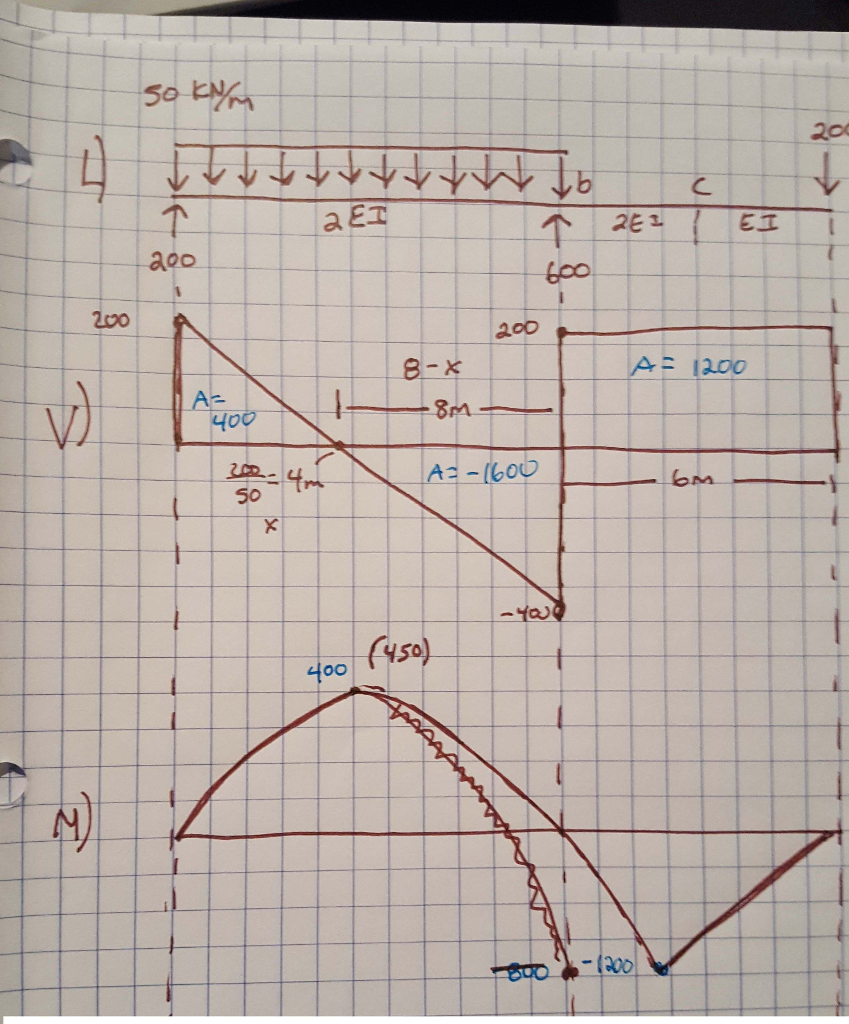 50 KN/m
200
L)
b
c
2EI
2EI
EI
200
600
200
200
8-x
A= 1200
V)
A=
400
8m
200/50 = 4m
x
A= -1600
6m
-400
400 (450)
M)
-800
-1200